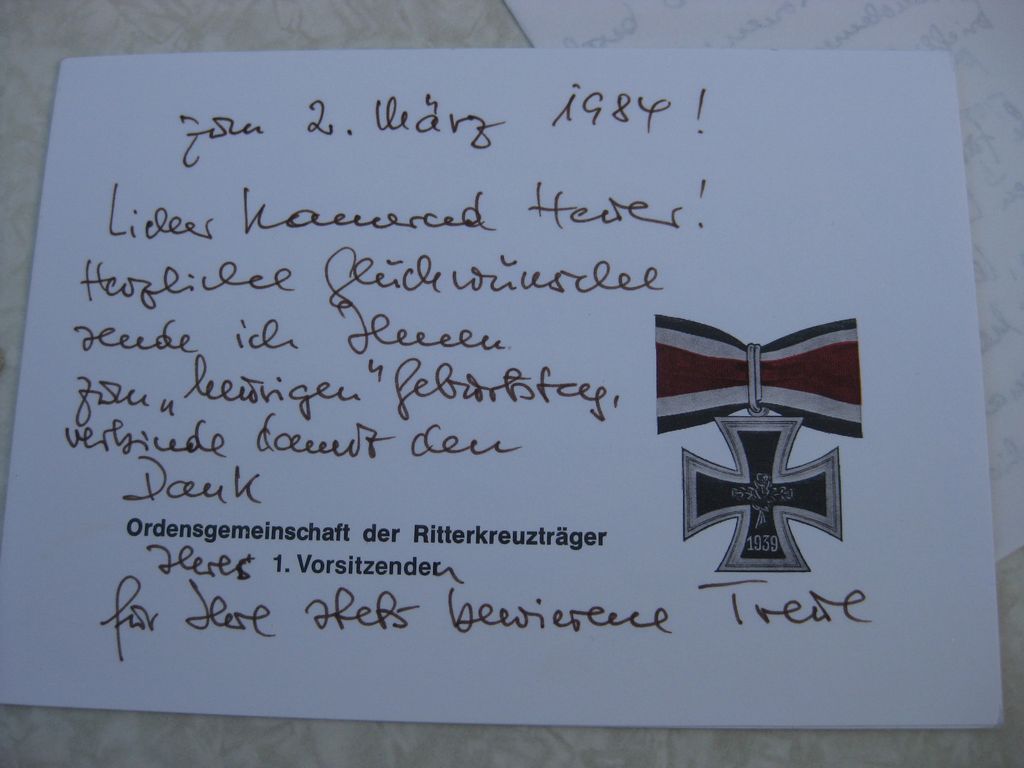 zum 2. März 1984!
Lieber Kamerad
Herzliche Glückwünsche
sende ich Ihnen
zum „heurigen" Geburtstag,
verbinde damit den
Dank
Ordensgemeinschaft der Ritterkreuzträger
Ihres 1. Vorsitzenden
für Ihre stets bewiesene Treue
1939